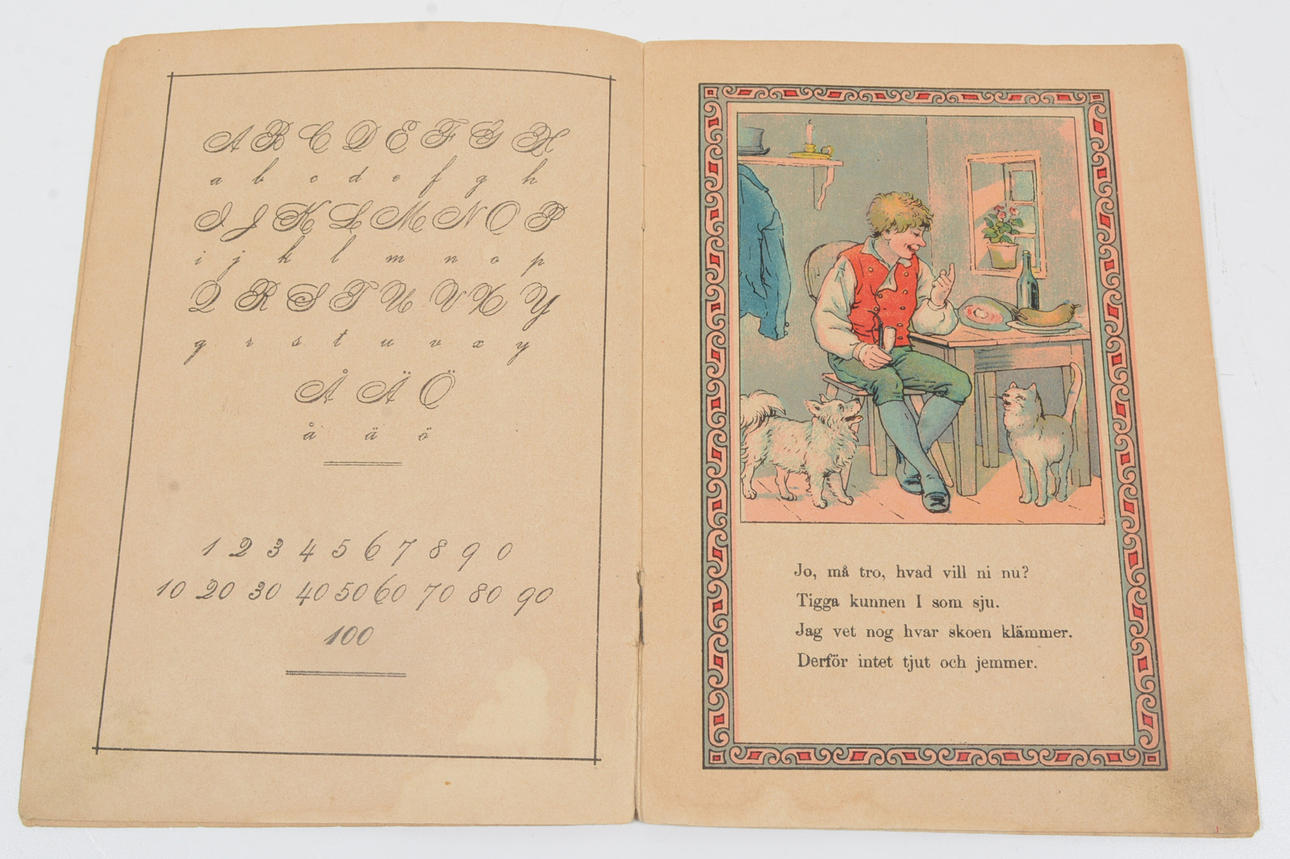 A B C D E F G H
a b c d e f g h
I J K L M N O P
i j k l m n o p
Q R S T U V X Y
q r s t u v x y
Å Ä Ö
å ä ö
1 2 3 4 5 6 7 8 9 0
10 20 30 40 50 60 70 80 90
100
Jo, må tro, hvad vill ni nu?
Tigga kunnen I som sju.
Jag vet nog hvar skoen klämmer.
Derför intet tjut och jemmer.